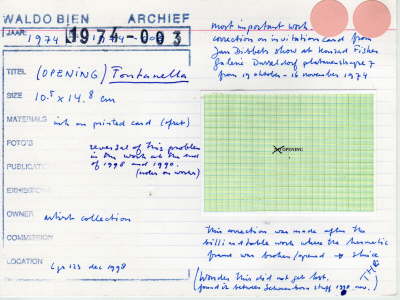 WALDO BIEN ARCHIEF
JAAR 1974 1974-003
TITEL (OPENING) Fontanella
SIZE 10.5 x 14.8 cm
MATERIALS ink on printed card (offset)
FOTO'S
reversal of this problem
in the work at the end
of 1998 and 1990.
(index on works)
PUBLICAT
OWNER artist collection
COMMISSION
LOCATION 123 dec 1998
most important work
correction on invitation card from
Jan Dibbets show at Konrad Fisher
Galerie Dusseldorf platanenstrasse 7
from 19 oktober - 16 november 1974
OPENING
This correction was made after the
table work where the hermetic
frame was broken/opened →
(Wonder this did not get lost,
found it between stuff 1998 nov.)